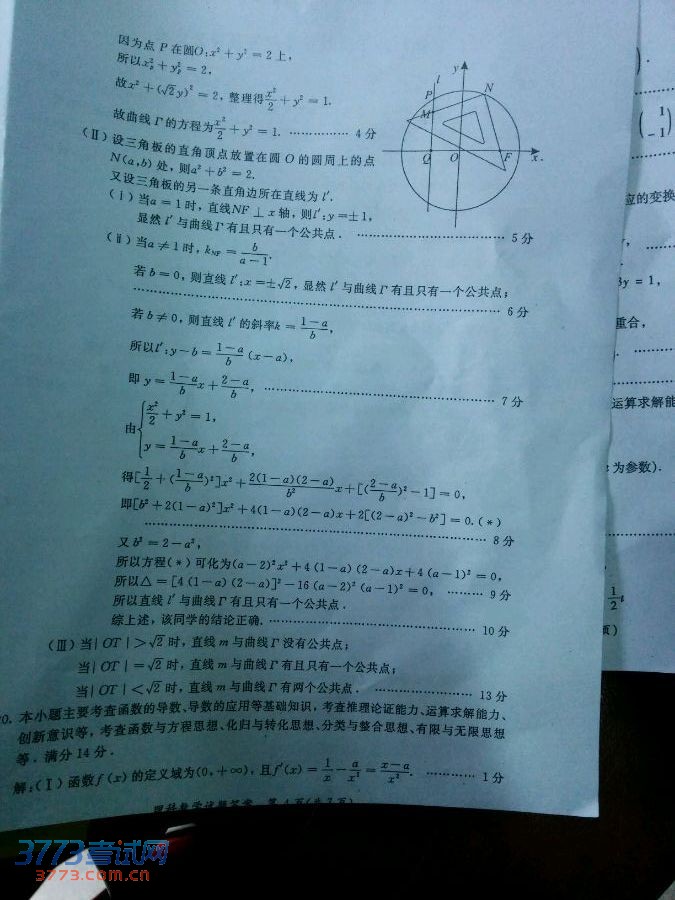 因为点 P 在圆O:x²+y²=2上,
所以x_P²+y_P²=2,
故x²+(√2y)²=2,整理得x²/2+y²=1.
故曲线Γ的方程为x²/2+y²=1. …………… 4分
(Ⅱ)设三角板的直角顶点放置在圆 O 的圆周上的点
N(a,b)处,则a²+b²=2.
又设三角板的另一条直角边所在直线为l′.
(ⅰ)当a=1时,直线NF⊥x轴,则l′:y=±1,
显然l′与曲线Γ有且只有一个公共点. …………… 5分
(ⅱ)当a≠1时,k_NF=b/(a-1).
若b=0,则直线l′:x=±√2,显然l′与曲线Γ有且只有一个公共点;
…………… 6分
若b≠0,则直线l′的斜率k=(1-a)/b,
所以l′:y-b=(1-a)/b(x-a),
即y=(1-a)/b x+(2-a)/b, …………… 7分
由{x²/2+y²=1,
y=(1-a)/b x+(2-a)/b,
得[1/2+((1-a)/b)²]x²+2(1-a)(2-a)/b² x+[((2-a)/b)²-1]=0,
即[b²+2(1-a)²]x²+4(1-a)(2-a)x+2[(2-a)²-b²]=0.(*)
…………… 8分
又b²=2-a²,
所以方程(*)可化为(a-2)²x²+4(1-a)(2-a)x+4(a-1)²=0,
所以△=[4(1-a)(2-a)]²-16(a-2)²(a-1)²=0, ……… 9分
所以直线l′与曲线Γ有且只有一个公共点.
综上述,该同学的结论正确. …………… 10分
(Ⅲ)当|OT|>√2时,直线m与曲线Γ没有公共点;
当|OT|=√2时,直线m与曲线Γ有且只有一个公共点;
当|OT|<√2时,直线m与曲线Γ有两个公共点. …………… 13分
0. 本小题主要考查函数的导数、导数的应用等基础知识,考查推理论证能力、运算求解能力、
创新意识等,考查函数与方程思想、化归与转化思想、分类与整合思想、有限与无限思想
等.满分14分.
解:(Ⅰ)函数f(x)的定义域为(0,+∞),且f′(x)=1/x-a/x²=(x-a)/x². ………… 1分
理科数学试题答案 第4页(共7页)
y
l
P
N
M
Q
O
F
x
1
-1
应的变换
3y=1,
重合,
运算求解能
为参数).
1/2
页)
3773考试网
3773.com.cn